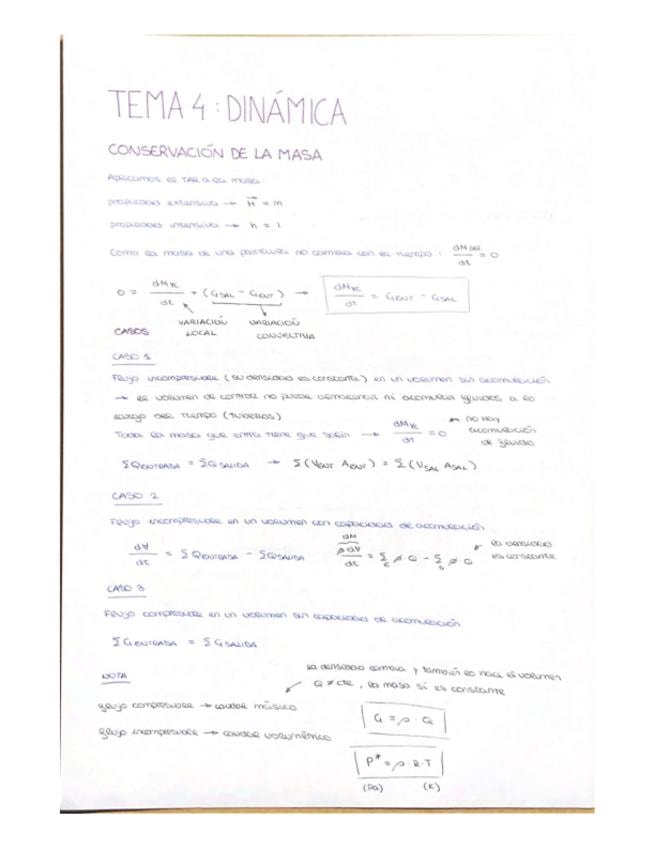 TEMA 4: DINÁMICA
CONSERVACIÓN DE LA MASA
Aplicamos el TAR a la masa:
propiedad extensiva → N = m
propiedad intensiva → h = 1
Como la masa de una partícula no cambia con el tiempo: dM/dt = 0
0 = dMvc/dt + (GSAL - GENT) → dMvc/dt = GENT - GSAL
VARIACIÓN LOCAL VARIACIÓN CONVECTIVA
CASOS
CASO 1
Flujo incompresible (su densidad es constante) en un volumen sin acumulación
→ el volumen de control no puede almacenar ni acumular fluidos a lo
largo del tiempo (tuberías)
Toda la masa que entra tiene que salir → dMvc/dt = 0 ← no hay acumulación de fluido
ΣQENTRADA = ΣQSALIDA → Σ(VENT AENT) = Σ(VSAL ASAL)
CASO 2
Flujo incompresible en un volumen con capacidad de acumulación
d∀/dt = ΣQENTRADA - ΣQSALIDA dM ρd∀/dt = Σe ρ·Q - Σs ρ·Q la densidad es constante
CASO 3
Flujo compresible en un volumen sin capacidad de acumulación
ΣGENTRADA = ΣGSALIDA
NOTA
la densidad cambia y también lo hace el volumen
Q ≠ cte, la masa sí es constante
flujo compresible → caudal másico
G = ρ·Q
flujo incompresible → caudal volumétrico
P* = ρ·R·T
(Pa) (K)